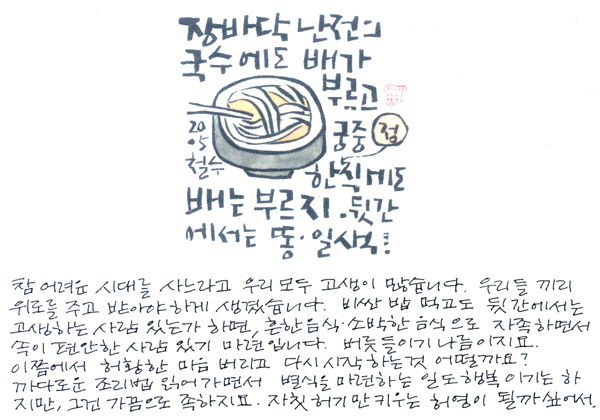 장바닥 난전의
국수에도 배가
부르고
궁중 점
한식에도
배는 부르지. 뒷간
에서는 똥. 일색!
2005
철수
참 어려운 시대를 사느라고 우리 모두 고생이 많습니다. 우리들 끼리
위로를 주고 받아야 하게 생겼습니다. 비싼 밥 먹고도 뒷간에서는
고생하는 사람 있는가 하면, 흔한 음식·소박한 음식으로 자족하면서
속이 편안한 사람 있기 마련입니다. 버릇들이기 나름이지요.
이쯤에서 허황한 마음 버리고 다시 시작하는 것 어떨까요?
까다로운 조리법 읽어가면서 별식을 마련하는 일도 행복이기는 하
지만, 그건 가끔으로 족하지요. 자칫 허기만 키우는 허영이 될까 싶어서.